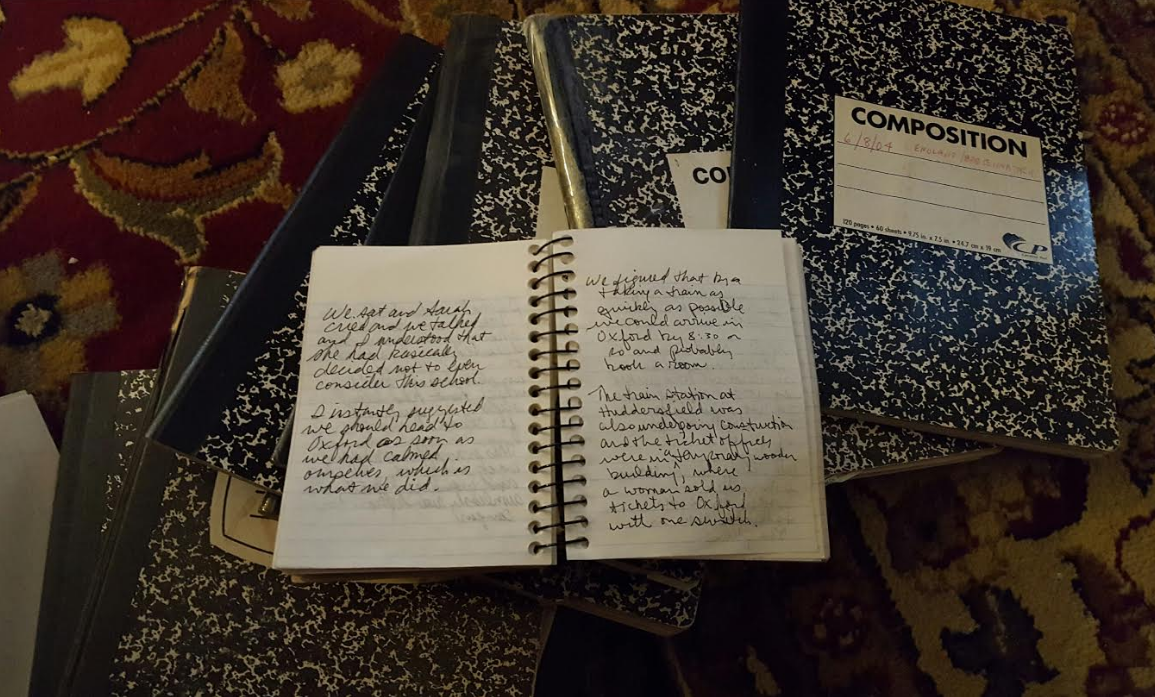 We sat and Sarah
cried and we talked
and I understood that
she had basically
decided not to even
consider this school.
I instantly suggested
we should head to
Oxford as soon as
we had calmed
ourselves, which is
what we did.
We figured that by
taking a train as
quickly as possible
we could arrive in
Oxford by 8:30 or
so and probably
book a room.
The train station at
Huddersfield was
also undergoing construction
and the ticket offices
were in a temporary, wooden
building, where
a woman sold us
tickets to Oxford
with one switch.
CO
COMPOSITION
6/8/04 ENGLAND
120 pages • 60 sheets • 9.75 in. x 7.5 in. • 24.7 cm x 19 cm
CP